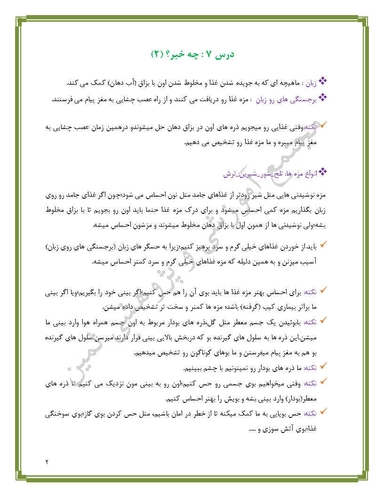 درس ۷ : چه خبر؟ (۲)
زبان : ماهیچه ای که به جویده شدن غذا و مخلوط شدن اون با بزاق (آب دهان) کمک می کند.
برجستگی های رو زبان : مزه غذا رو دریافت می کنند و از راه عصب چشایی به مغز پیام می فرستند.
نکته:وقتی غذایی رو میجویم ذره های اون در بزاق دهان حل میشوندو درهمین زمان عصب چشایی به
مغز پیام میبره و ما مزه غذا رو تشخیص می دهیم.
انواع مزه ها: تلخ_شور_شیرین_ترش
مزه نوشیدنی هایی مثل شیر زودتر از غذاهای جامد مثل نون احساس می شود؛چون اگر غذای جامد رو روی
زبان بگذاریم مزه کمی احساس میشود و برای درک مزه غذا حتما باید اون رو بجویم تا با بزاق مخلوط
بشه؛ولی نوشیدنی ها از همون اول با بزاق دهان مخلوط میشوند و مزشون احساس میشه.
باید از خوردن غذاهای خیلی گرم و سرد پرهیز کنیم؛زیرا به حسگر های زبان (برجستگی های روی زبان)
آسیب میزنن و به همین دلیله که مزه غذاهای خیلی گرم و سرد کمتر احساس میشه.
نکته: برای احساس بهتر مزه غذا ها باید بوی آن را هم حس کنیم؛اگر بینی خود را بگیریم؛ویا اگر بینی
ما براثر بیماری کیپ (گرفته) باشه؛ مزه ها کمتر و سخت تر تشخیص داده میشن.
نکته: بابوئیدن یک جسم معطر مثل گل،ذره های بودار مربوط به اون جسم همراه هوا وارد بینی ما
میشن.این ذره ها به سلول های گیرنده بو که دربخش بالایی بینی قرار دارند میرسن.سلول های گیرنده
بو هم به مغز پیام میفرستن و ما بوهای گوناگون رو تشخیص میدهیم.
نکته: ما ذره های بودار رو نمیتونیم با چشم ببینیم.
نکته: وقتی میخواهیم بوی جسمی رو حس کنیم؛اون رو به بینی مون نزدیک می کنیم تا ذره های
معطر(بودار) وارد بینی بشه و بویش را بهتر احساس کنیم.
نکته: حس بویایی به ما کمک میکنه تا از خطر در امان باشیم، مثل حس کردن بوی گاز؛بوی سوختگی
غذا؛بوی آتش سوزی و ....
۲